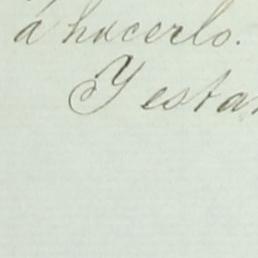 á hacerlo.
Y esta